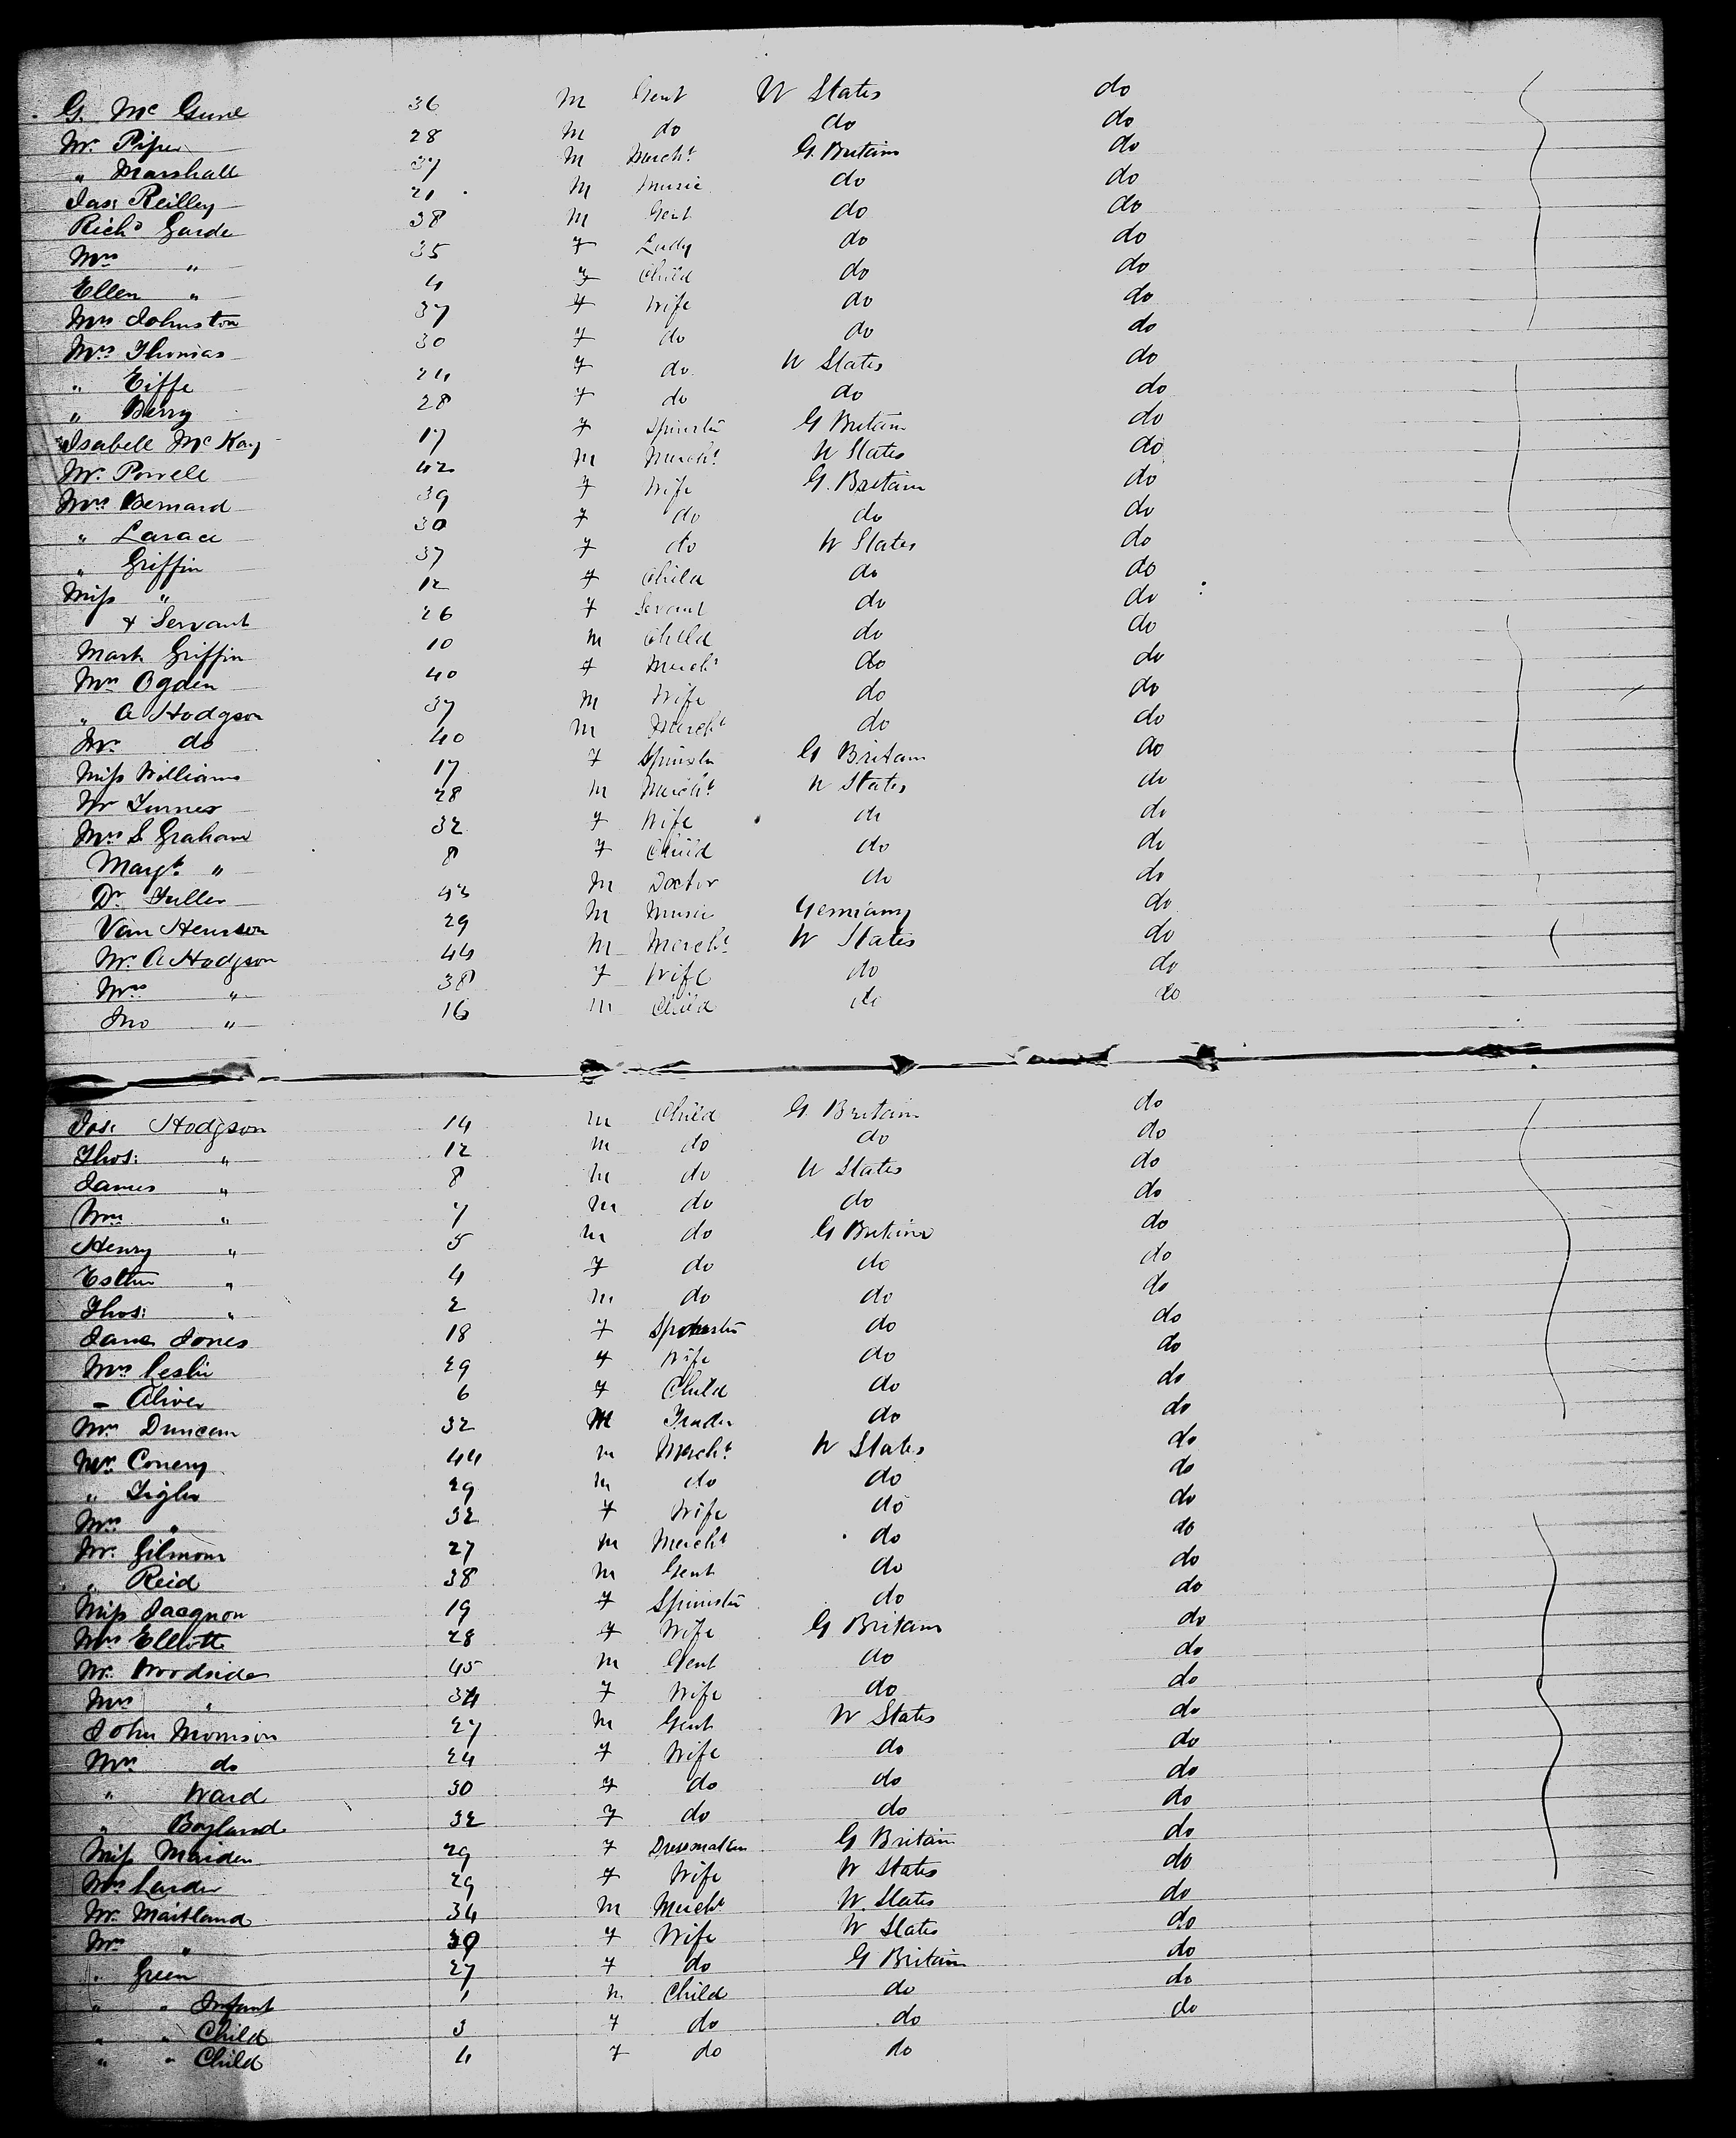 G. Mc Gune 36 M Gent U States do
Mr. Piper 28 M do do do
" Marshall 37 M Mercht G. Britain do
Jas: Reilley 21 M Music do do
Richd Garde 38 M Gent do do
Mrs " 35 F Lady do do
Ellen " 4 F Child do do
Mrs Johnston 37 F Wife do do
Mrs Thomas 30 F do do do
" Eiffe 24 F do U States do
" Berry 28 F do do do
Isabell Mc Kay 17 F Spinster G Britain do
Mr. Powell 42 M Mercht U States do
Mrs Bernard 39 F Wife G. Britain do
" Larace 30 F do do do
" Griffin 37 F do U States do
Miss " 12 F Child do do
& Servant 26 F Servant do do
Mark Griffin 10 M Child do do
Mrs Ogden 40 F Mercht do do
" A Hodgson 37 M Wife do do
Mr. do 40 M Mercht do do
Miss Williams 17 F Spinster G Britain do
Mr Turner 28 M Mercht U States do
Mrs S. Graham 32 F Wife do do
Margt. " 8 F Child do do
Dr Fuller 43 M Doctor do do
Van Hewson 29 M Music Germany do
Mr. A Hodgson 44 M Mercht U States do
Mrs " 38 F Wife do do
Jno " 16 M Child do do
Jas: Hodgson 14 M Child G. Britain do
Thos: " 12 M do do do
James " 8 M do U States do
Wm " 7 M do do do
Henry " 5 M do G Britain do
Esther " 4 F do do do
Thos: " 2 M do do do
Jane Jones 18 F Spinster do do
Mrs Leslie 29 F Wife do do
- Oliver 6 F Child do do
Mr Duncan 32 M Trader do do
Mr. Conery 44 M Mercht U States do
" Tighe 29 M do do do
Mrs " 32 F Wife do do
Mr. Gilmour 27 M Mercht do do
" Reid 38 M Gent do do
Miss Jacqnon 19 F Spinster do do
Mrs Elliott 28 F Wife G Britain do
Mr. Woodside 45 M Gent do do
Mrs " 34 F Wife do do
John Morrison 27 M Gent U States do
Mrs do 24 F Wife do do
" Ward 30 F do do do
" Boyland 32 F do do do
Miss Maiden 29 F Dressmaker G Britain do
Mrs Larder 29 F Wife U States do
Mr. Maitland 34 M Mercht U. States do
Mrs " 39 F Wife U States do
" Green 27 F do G Britain do
" " Infant 1 M Child do do
" " Child 3 F do do do
" " Child 4 F do do